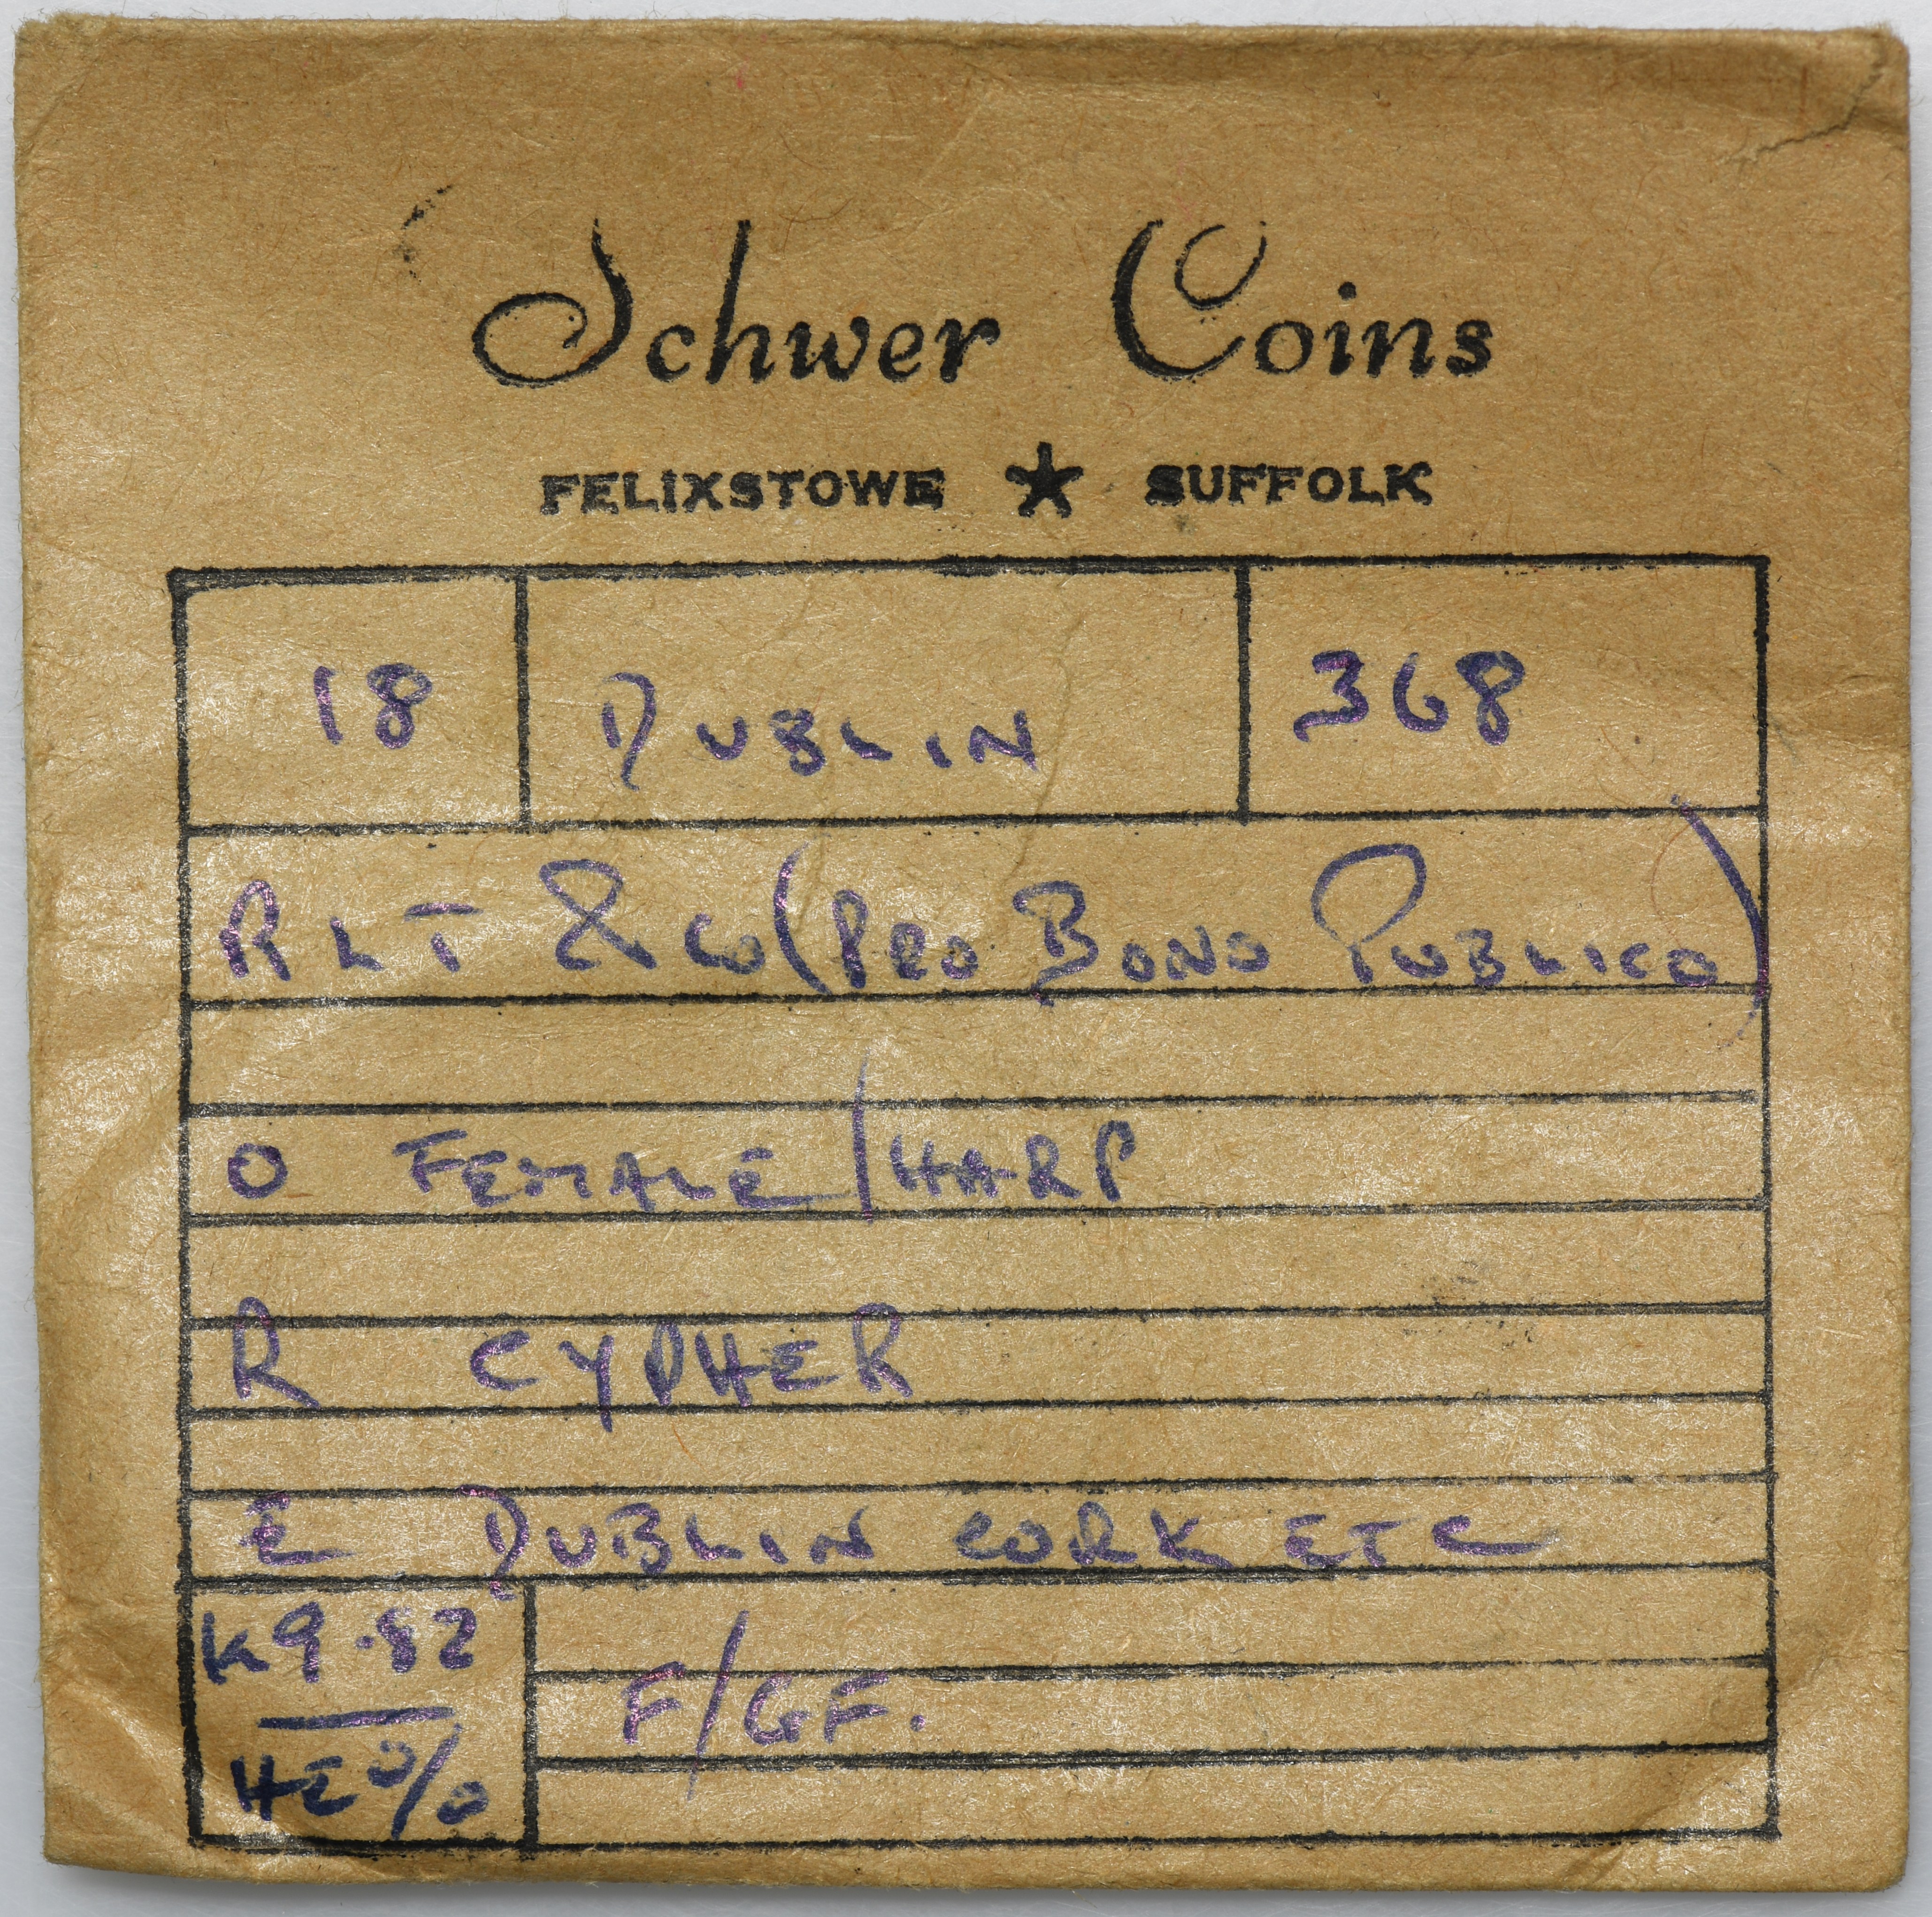 Schwer Coins
FELIXSTOWE ★ SUFFOLK
18 DUBLIN 368
RLT & CO (PRO BONO PUBLICO)
O FEMALE/HARP
R CYPHER
E DUBLIN CORK ETC
K9.82
F/GF.
HEO/O